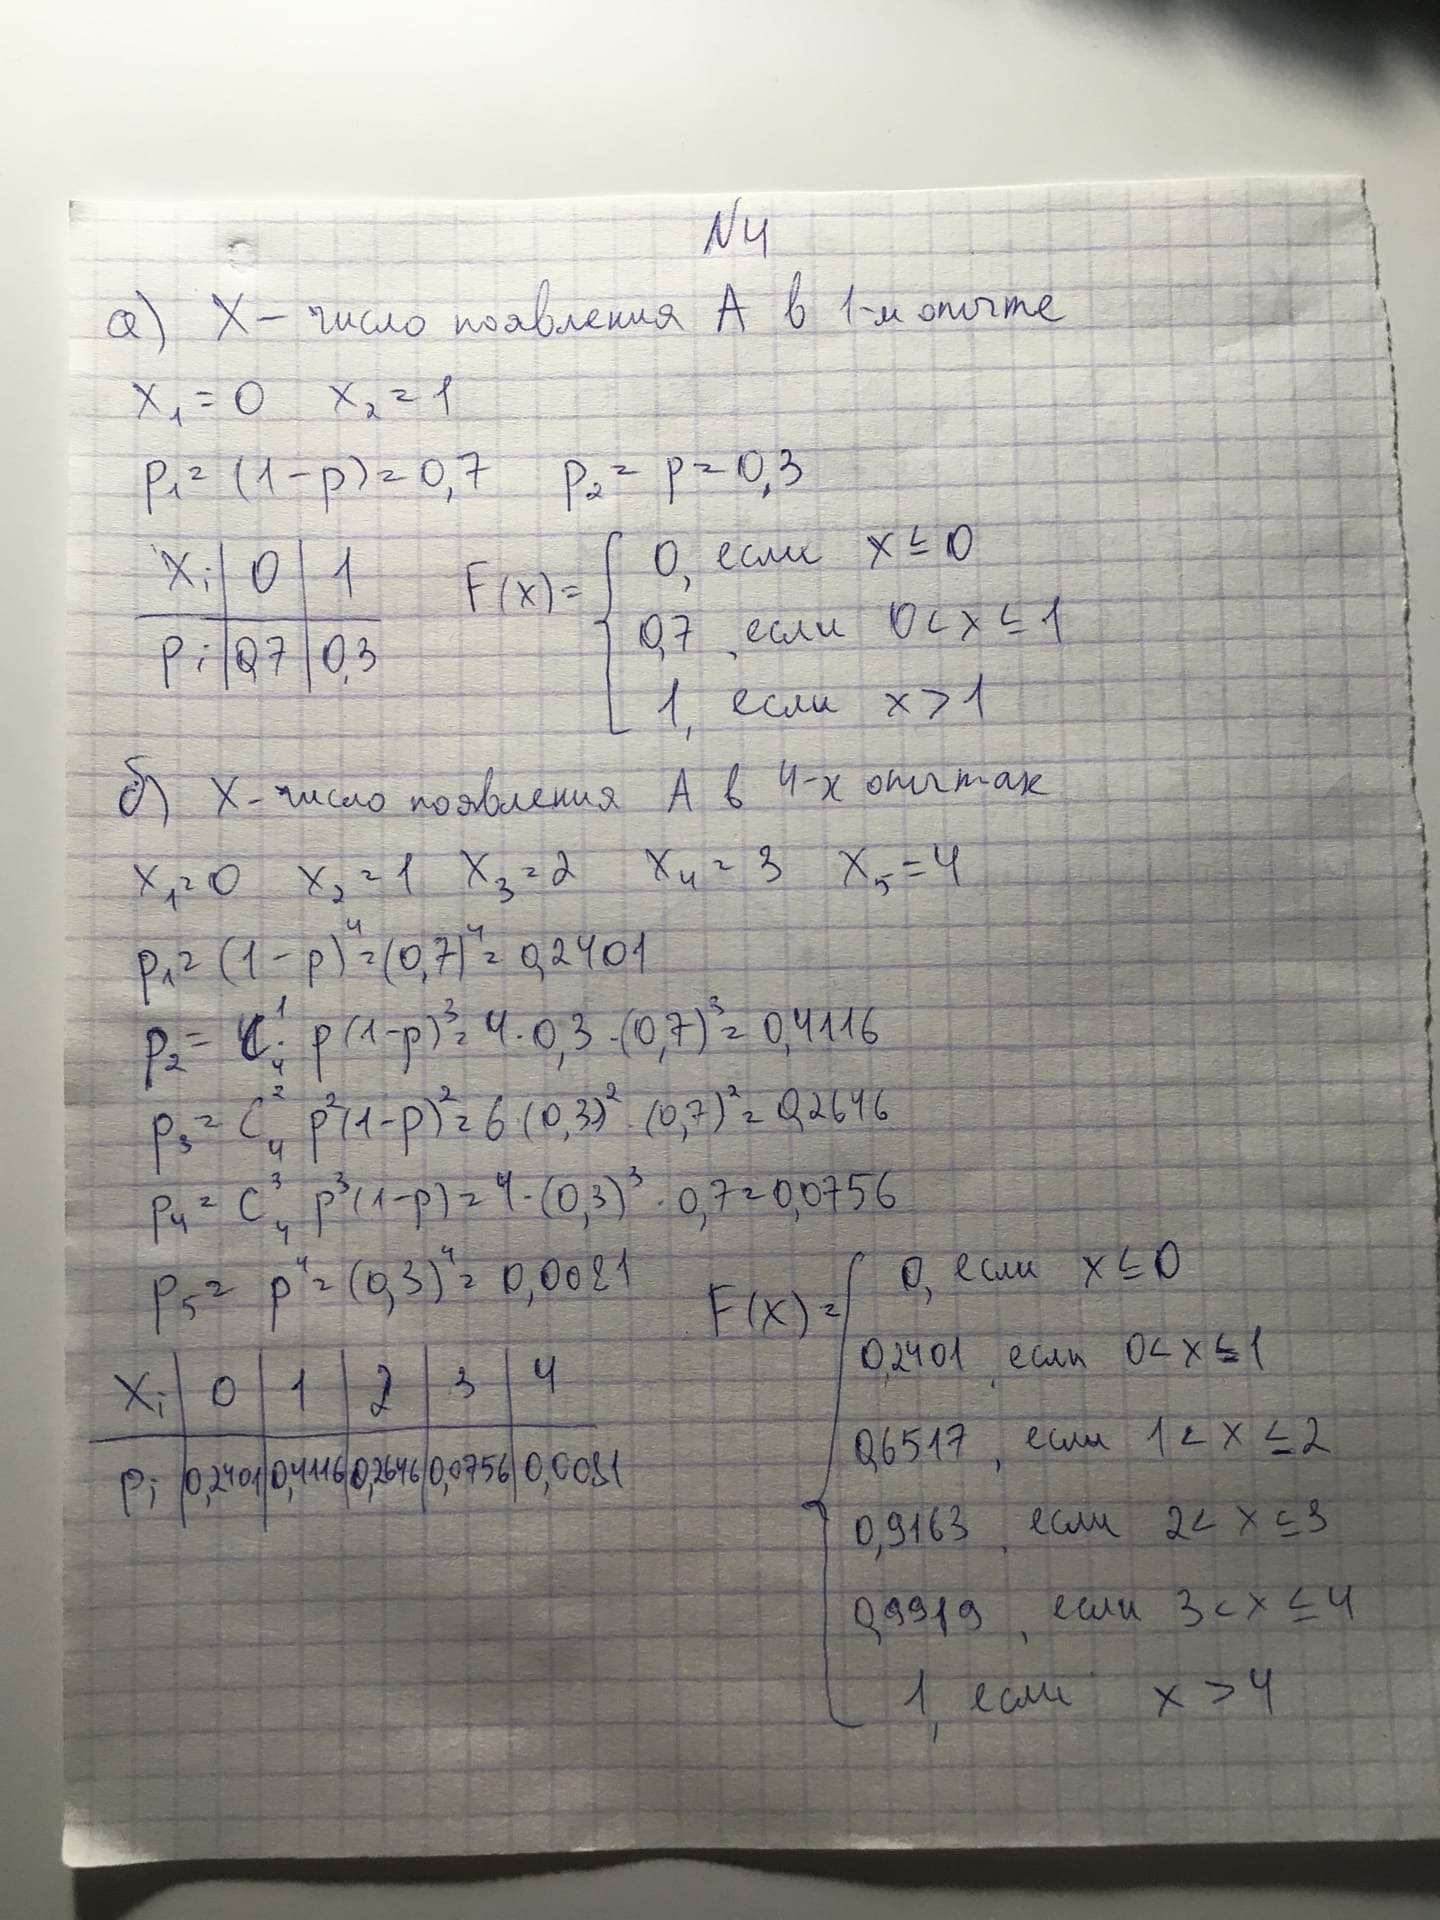 N4
а) X – число появления A в 1-м опыте
x₁ = 0 x₂ = 1
p₁ = (1-p) = 0,7 p₂ = p = 0,3
xᵢ | 0 | 1
pᵢ | 0,7 | 0,3
F(x) = { 0, если x ≤ 0
0,7, если 0 < x ≤ 1
1, если x > 1
б) X – число появления A в 4-х опытах
x₁ = 0 x₂ = 1 x₃ = 2 x₄ = 3 x₅ = 4
p₁ = (1-p)⁴ = (0,7)⁴ = 0,2401
p₂ = C₄¹ · p(1-p)³ = 4 · 0,3 · (0,7)³ = 0,4116
p₃ = C₄² p²(1-p)² = 6 · (0,3)² · (0,7)² = 0,2646
p₄ = C₄³ p³(1-p) = 4 · (0,3)³ · 0,7 = 0,0756
p₅ = p⁴ = (0,3)⁴ = 0,0081
xᵢ | 0 | 1 | 2 | 3 | 4
pᵢ | 0,2401 | 0,4116 | 0,2646 | 0,0756 | 0,0081
F(x) = { 0, если x ≤ 0
0,2401, если 0 < x ≤ 1
0,6517, если 1 < x ≤ 2
0,9163, если 2 < x ≤ 3
0,9919, если 3 < x ≤ 4
1, если x > 4